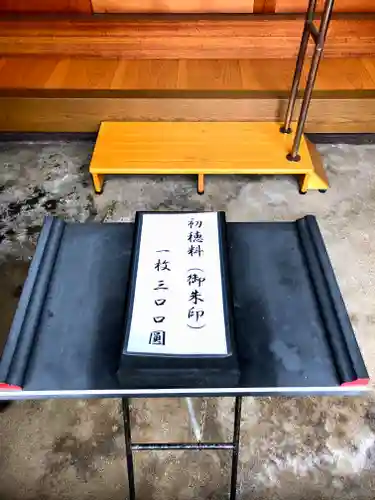 初穂料（御朱印）
一枚三〇〇圓